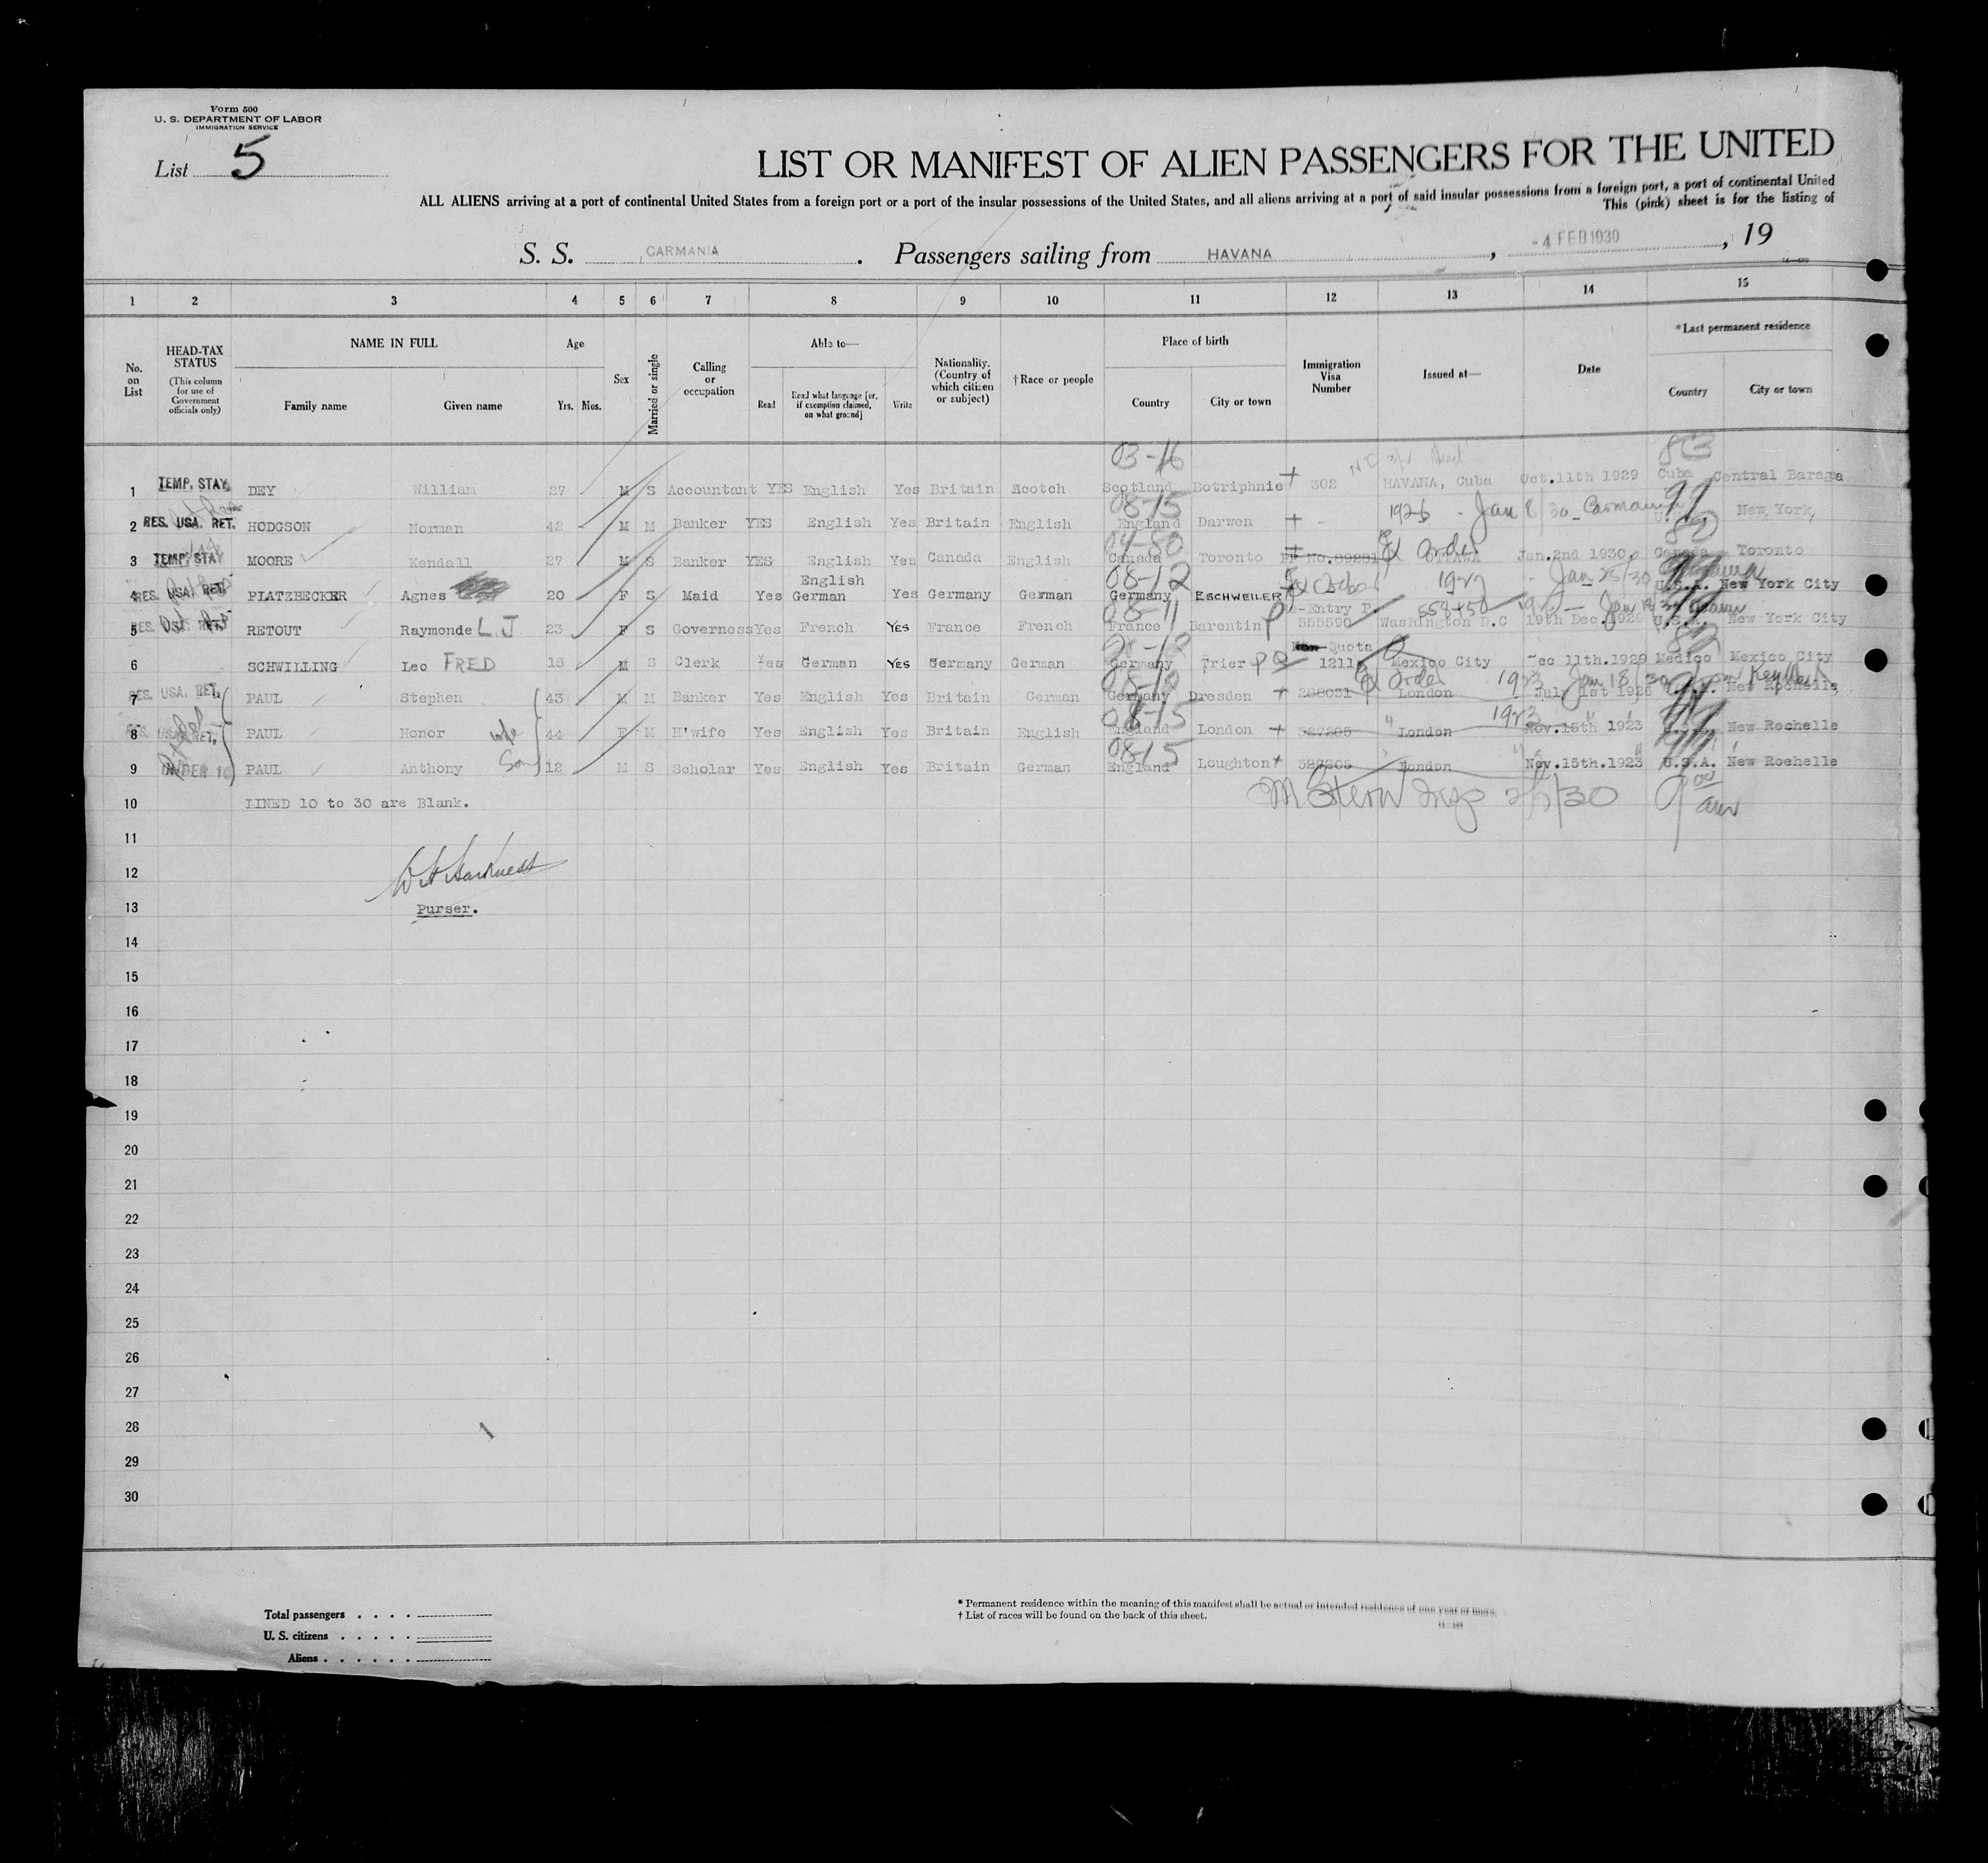 Form 500
U. S. DEPARTMENT OF LABOR
IMMIGRATION SERVICE
List 5
LIST OR MANIFEST OF ALIEN PASSENGERS FOR THE UNITED
ALL ALIENS arriving at a port of continental United States from a foreign port or a port of the insular possessions of the United States, and all aliens arriving at a port of said insular possessions from a foreign port, a port of continental United
This (pink) sheet is for the listing of
S. S. CARMANIA . Passengers sailing from HAVANA , -4 FEB 1930 , 19
1 2 3 4 5 6 7 8 9 10 11 12 13 14 15
No. on List
HEAD-TAX STATUS (This column for use of Government officials only)
NAME IN FULL
Family name Given name
Age
Yrs. Mos.
Sex
Married or single
Calling or occupation
Able to—
Read Read what language [or, if exemption claimed, on what ground] Write
Nationality. (Country of which citizen or subject)
†Race or people
Place of birth
Country City or town
Immigration Visa Number
Issued at—
Date
*Last permanent residence
Country City or town
03-16
1 TEMP. STAY DEY William 27 M S Accountant YES English Yes Britain Scotch Scotland Botriphnie + 302 HAVANA, Cuba Oct.11th 1929 Cuba Central Baraga
08-15
2 RES. USA. RET. HODGSON Norman 42 M M Banker YES English Yes Britain English England Darwen + - 1926 - Jan 8/30 - Carmania New York,
3 TEMP. STAY MOORE Kendall 27 M S Banker YES English Yes Canada English Canada Toronto No.89281 OTTAWA Jan.2nd 1930. Canada Toronto
08-12
4 RES. USA. RET. PLATZBECKER Agnes 20 F S Maid Yes English German Yes Germany German Germany ESCHWEILER 1927 - Jan 25/30 U.S.A. New York City
08-11
5 RES. USA. RET. RETOUT Raymonde L J 23 F S Governess Yes French YES France French France Barentin P Re-Entry P. 555590 558450 Washington D.C 19th Dec. 1929 U.S.A. New York City
6 SCHWILLING Leo FRED 18 M S Clerk Yes German YES Germany German Germany Trier PQ Quota 1211 Mexico City Dec 11th.1929 Mexico Mexico City
7 RES. USA. RET. PAUL Stephen 43 M M Banker Yes English Yes Britain German Germany Dresden + London 1923 Jan 18/30 July 1st 1926 New Rochelle
08-15
8 RES. USA. RET. PAUL Honor wife 44 F M H'wife Yes English Yes Britain English England London + 527205 " London 1923 Nov.15th 1923 New Rochelle
08-15
9 UNDER 16 PAUL Anthony Son 12 M S Scholar Yes English Yes Britain German England Loughton + London Nov.15th.1923 U.S.A. New Rochelle
10 LINED 10 to 30 are Blank. M Stern Insp 2/7/30 9 00 am
11
12 W H Harkness
13 Purser.
14
15
16
17
18
19
20
21
22
23
24
25
26
27
28
29
30
Total passengers . . . .
U. S. citizens . . . . .
Aliens . . . . . .
* Permanent residence within the meaning of this manifest shall be actual or intended residence of one year or more.
† List of races will be found on the back of this sheet.